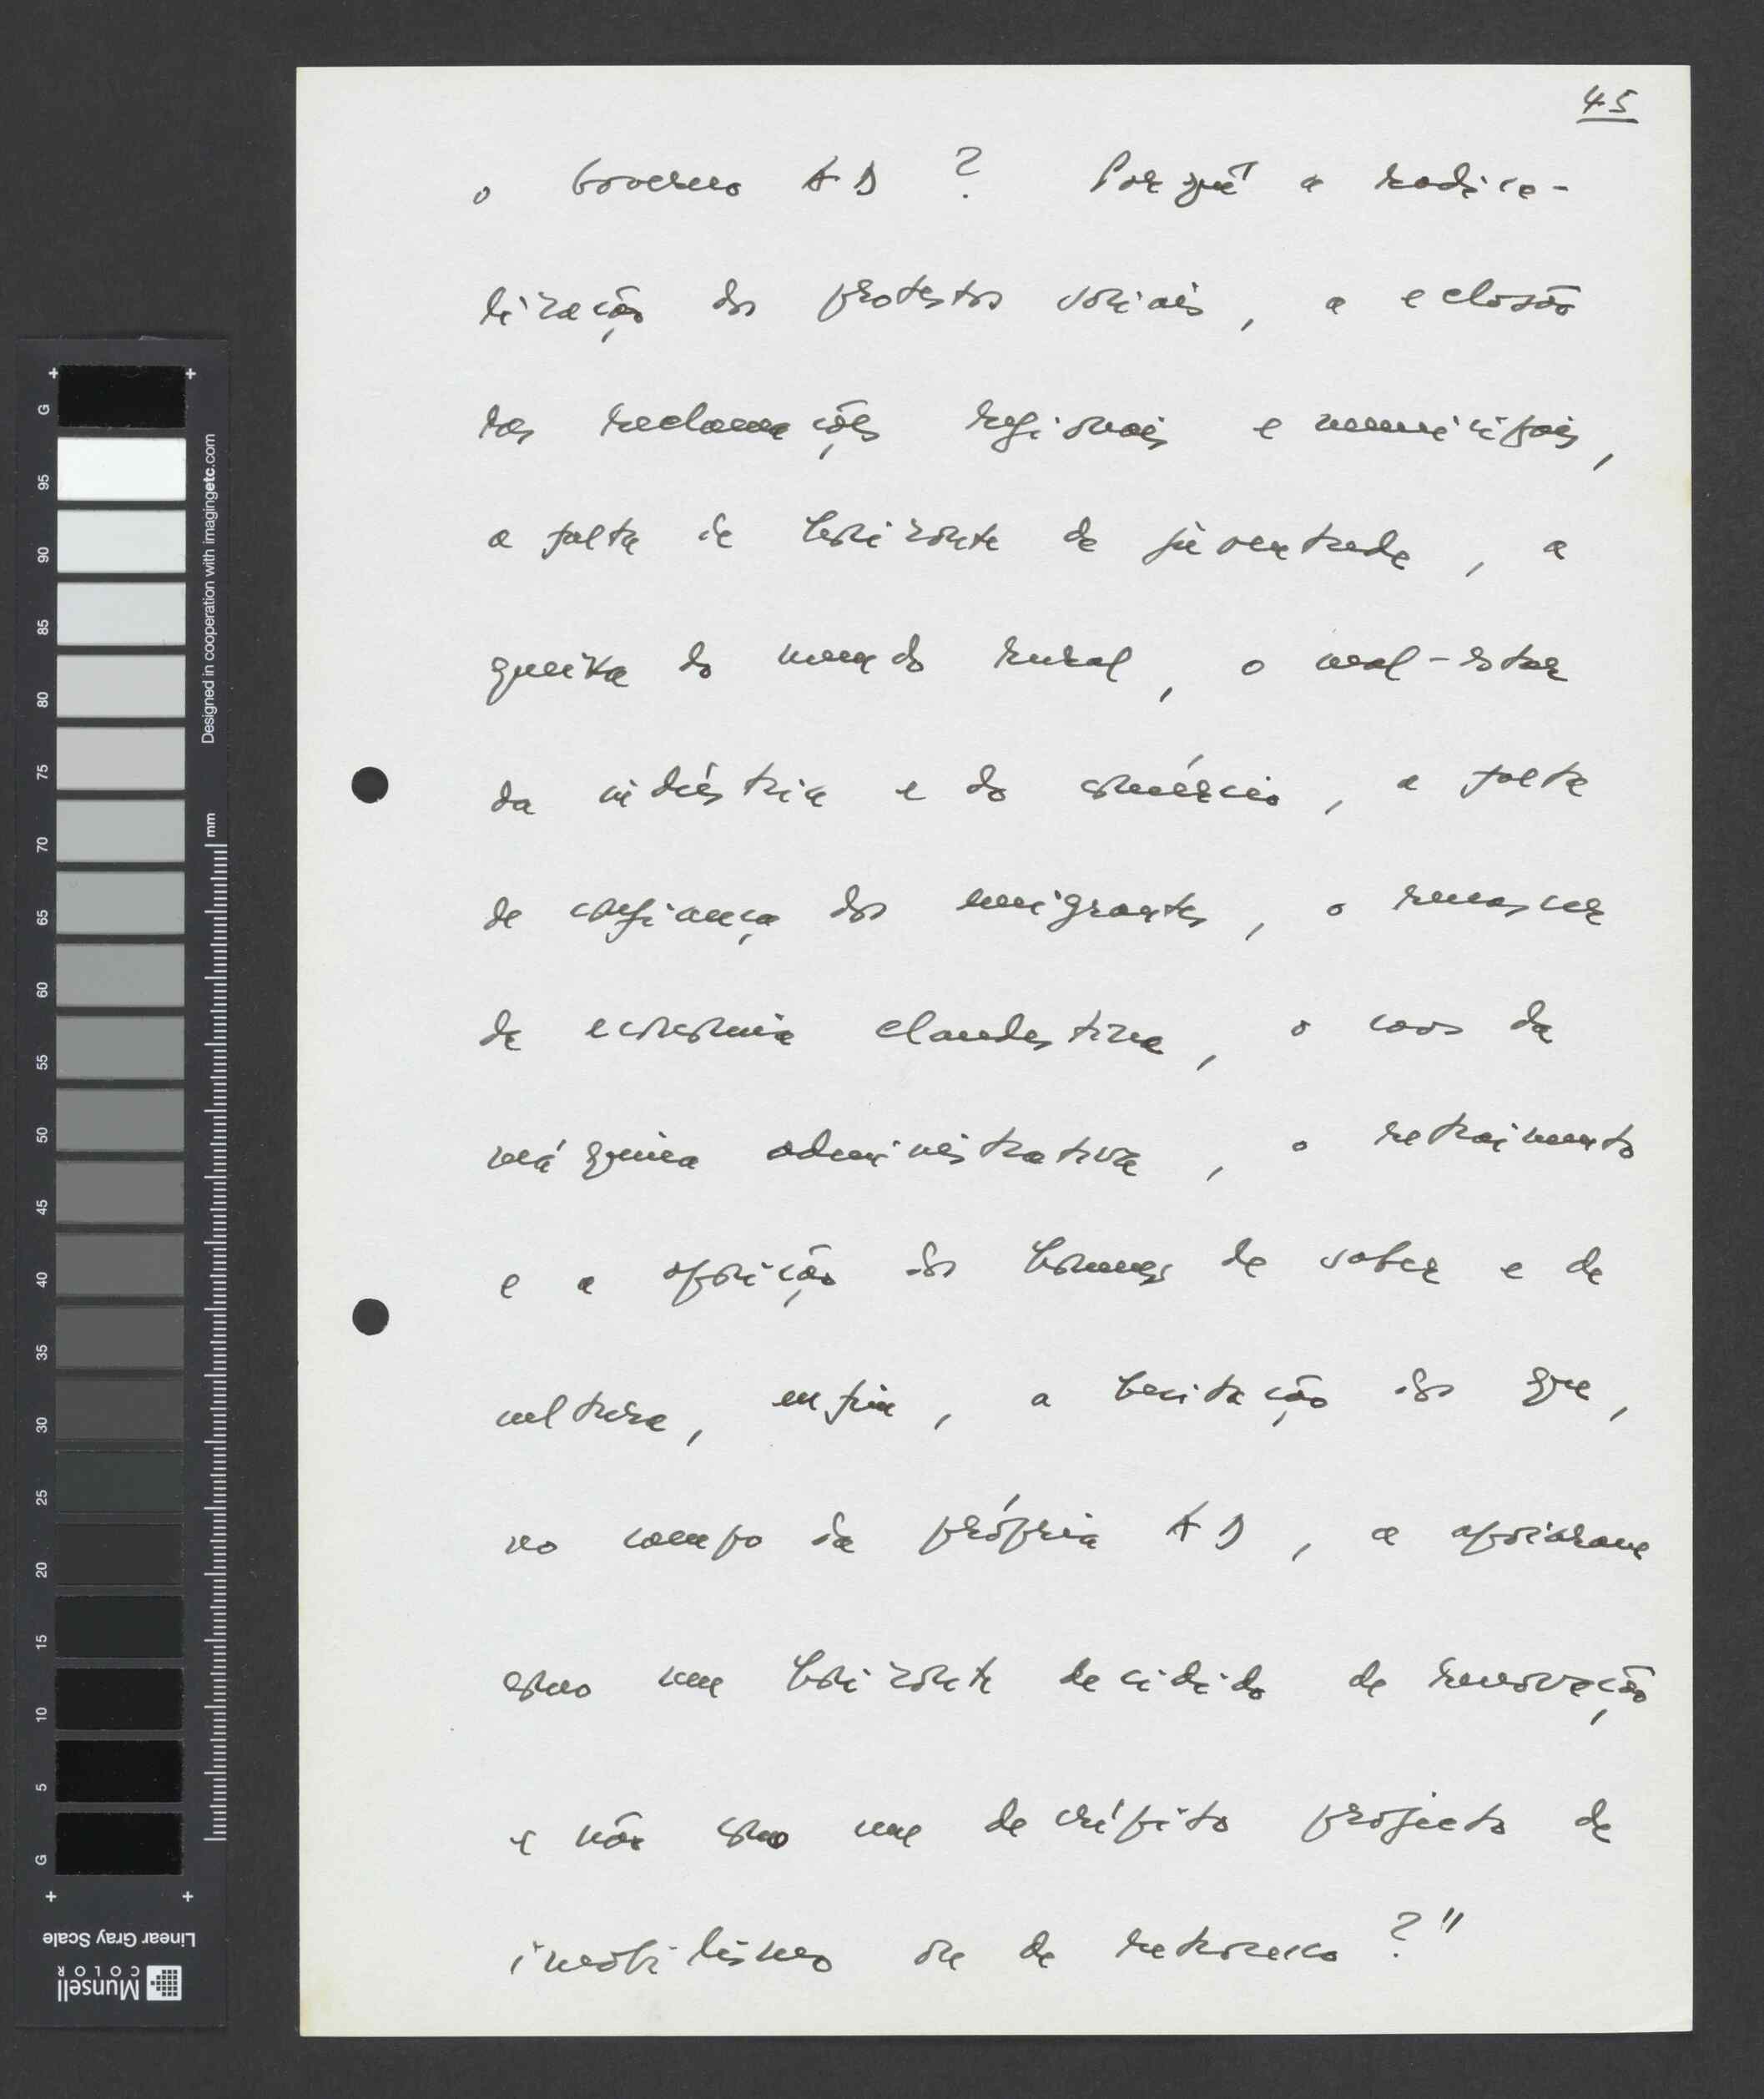 45
o Governo AD ? Porquê a radica-
lização dos protestos sociais, a eclosão
das reclamações regionais e municipais,
a falta de horizonte da juventude, a
queixa do mundo rural, o mal-estar
da indústria e do comércio, a falta
de confiança dos emigrantes, o renascer
da economia clandestina, o caos da
máquina administrativa, o retraimento
e a oposição dos homens de saber e de
cultura, enfim, a hesitação dos que,
no campo da própria AD, a apoiaram
como um horizonte decidido de renovação
e não como um decrépito projecto de
imobilismo ou de retrocesso ?"
G
95
90
85
80
75
70
65
60
55
50
45
40
35
30
25
20
15
10
5
G
Designed in cooperation with imagingetc.com
mm
Linear Gray Scale
Munsell
COLOR